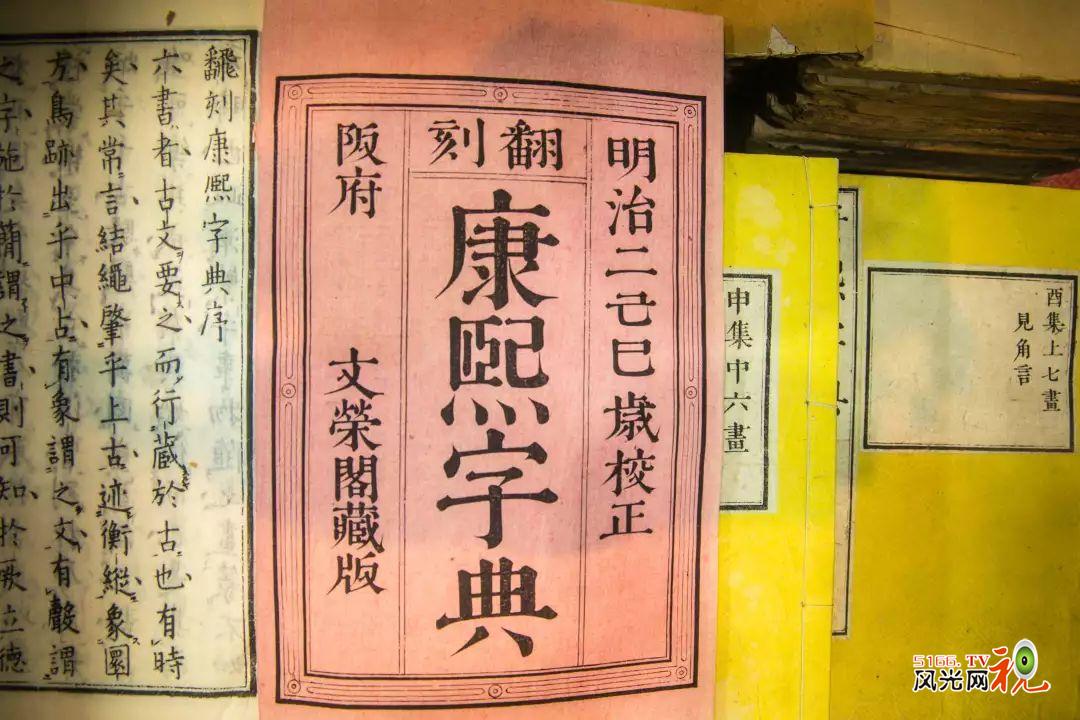 酉集上七畫
見角言
申集中六畫
明治二己巳歲校正
翻刻
康熙字典
阪府 文榮閣藏版
飜刻康熙字典序
六書者古文要之而行藏於古也有時
矣其常言結繩肇乎上古迹衡縱象圜
方鳥跡出乎中占有象謂之文有聲謂
之字施於簡謂之書則可知於厥立德
5166.TV
风光网视